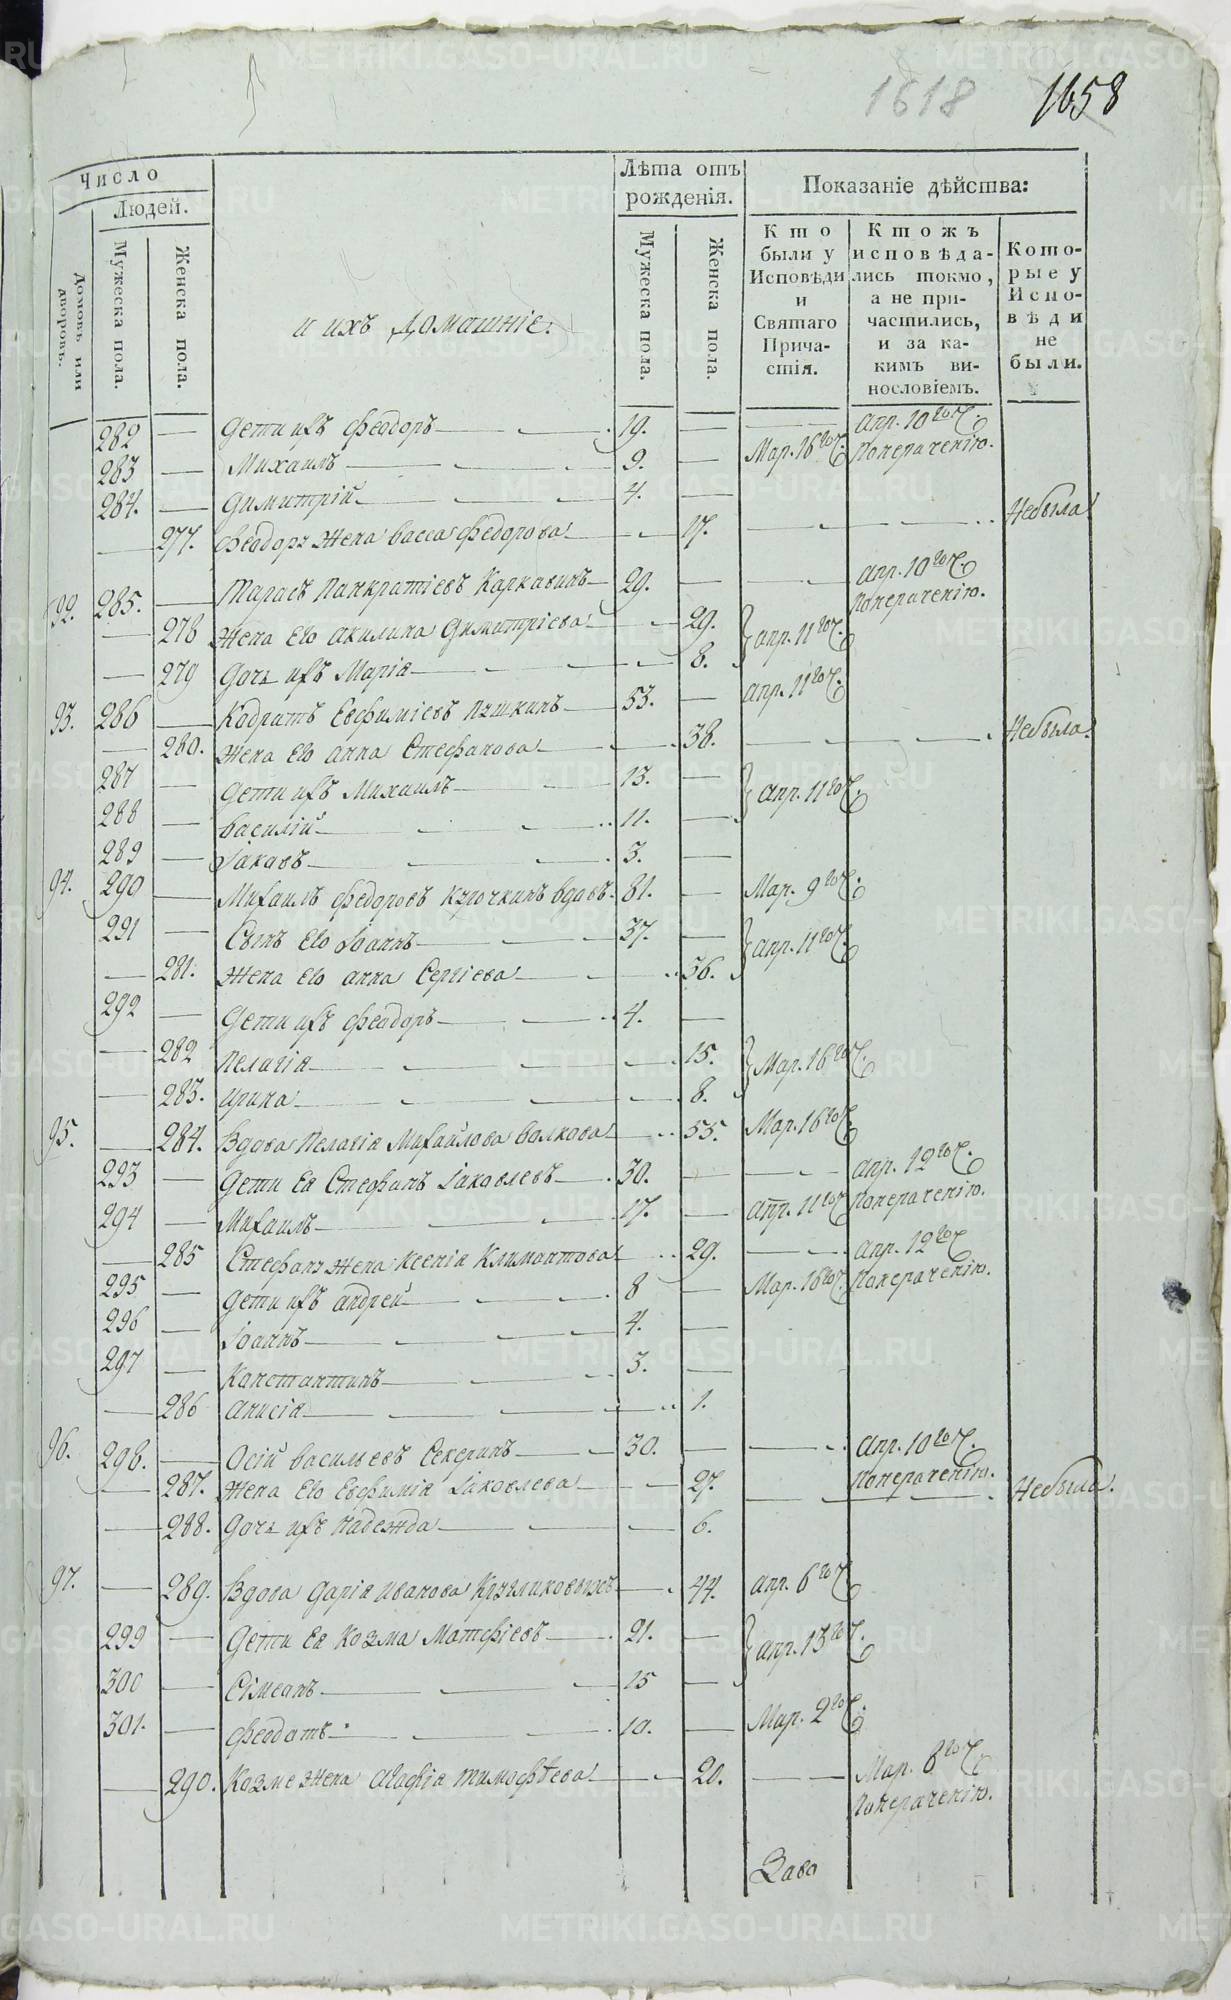 1618 1658
Число
Людей.
Домовъ или дворовъ.
Мужеска пола.
Женска пола.
и ихъ домашніе:
Лѣта отъ рожденія.
Мужеска пола.
Женска пола.
Показаніе дѣйства:
Кто были у Исповѣди и Святаго Причастія.
Ктожъ исповѣдались токмо, а не причастились, и за какимъ винословіемъ.
Которые у Исповѣди не были.
282 — Дети ихъ Феодоръ — 19. — — Апр. 10го Ч. По нерачению.
283 — Михаилъ — 9. — Мар. 16го Ч.
284. — Димитрій — 4. —
— 277. Феодора жена Васса Федорова — 17. — — Небыла.
92. 285. — Тарасъ Панкратіевъ Каркавинъ — 29. — — Апр. 10го Ч. По нерачению.
— 278 Жена Его Акилина Димитріева — 29. Апр. 11го Ч.
— 279 Дочь ихъ Марія — 8.
93. 286 — Кодратъ Евфиміевъ Пушкинъ — 53. — Апр. 11го Ч.
— 280. Жена Его Анна Стефанова — 38. — — Небыла.
287 — Дети ихъ Михаилъ — 13. — Апр. 11го Ч.
288 — Василій — 11. —
289 — Іаковъ — 3. —
94. 290 — Михаилъ Федоровъ Крючкинъ вдовъ. 81. — Мар. 9го Ч.
291 — Сынъ Его Іоаннъ — 37. — Апр. 11го Ч.
— 281. Жена Его Анна Сергіева — 36.
292 — Дети ихъ Феодоръ — 4. —
— 282 Пелагія — 15. Мар. 16го Ч.
— 283. Ирина — 8.
95. — 284. Вдова Пелагія Михайлова Волкова — 55. Мар. 16го Ч.
293 — Дети Ея Стефанъ Іаковлевъ — 30. — — Апр. 12го Ч. По нерачению.
294 — Михаилъ — 17. — Апр. 11го Ч.
— 285 Стефана жена Ксенія Климантова — 29. — Апр. 12го Ч. По нерачению.
295 — Дети ихъ Андрей — 8 — Мар. 16го Ч.
296 — Іоаннъ — 4. —
297 — Канстантинъ — 3. —
— 286 Анисія — 1.
96. 298. — Осій Васильевъ Секеринъ — 30. — — Апр. 10го Ч. По нерачению.
— 287. Жена Его Евфимія Іаковлева — 27. — — Небыла.
— 288. Дочь ихъ Надежда — 6.
97. — 289. Вдова Дарія Иванова — 44. Апр. 6го Ч.
299 — Дети Ея Козма Матфіевъ — 21. — Апр. 13го Ч.
300 — Сімеанъ — 15 —
301. — Феодотъ — 10. — Мар. 2го Ч.
— 290. Козме жена Агафія Тимофѣева — 20. — Мар. 8го Ч. По нерачению.